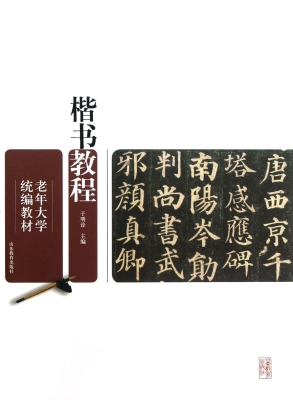 楷书教程
老年大学
统编教材
主编
山东教育出版社
唐西京千
塔感應碑
南陽岑勛
判尚書武
邪顏真卿